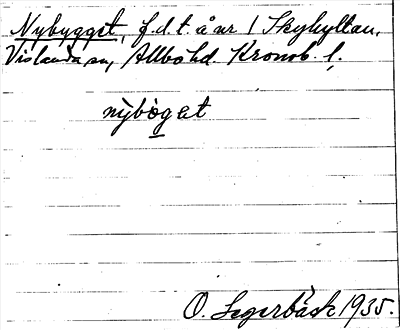 Nybygget, f.d.t. å nr 1 Skyhyltan,
Vislanda sn, Allbo hd. Kronob. l.
nỳbògat
O. Segerbäck 1935.